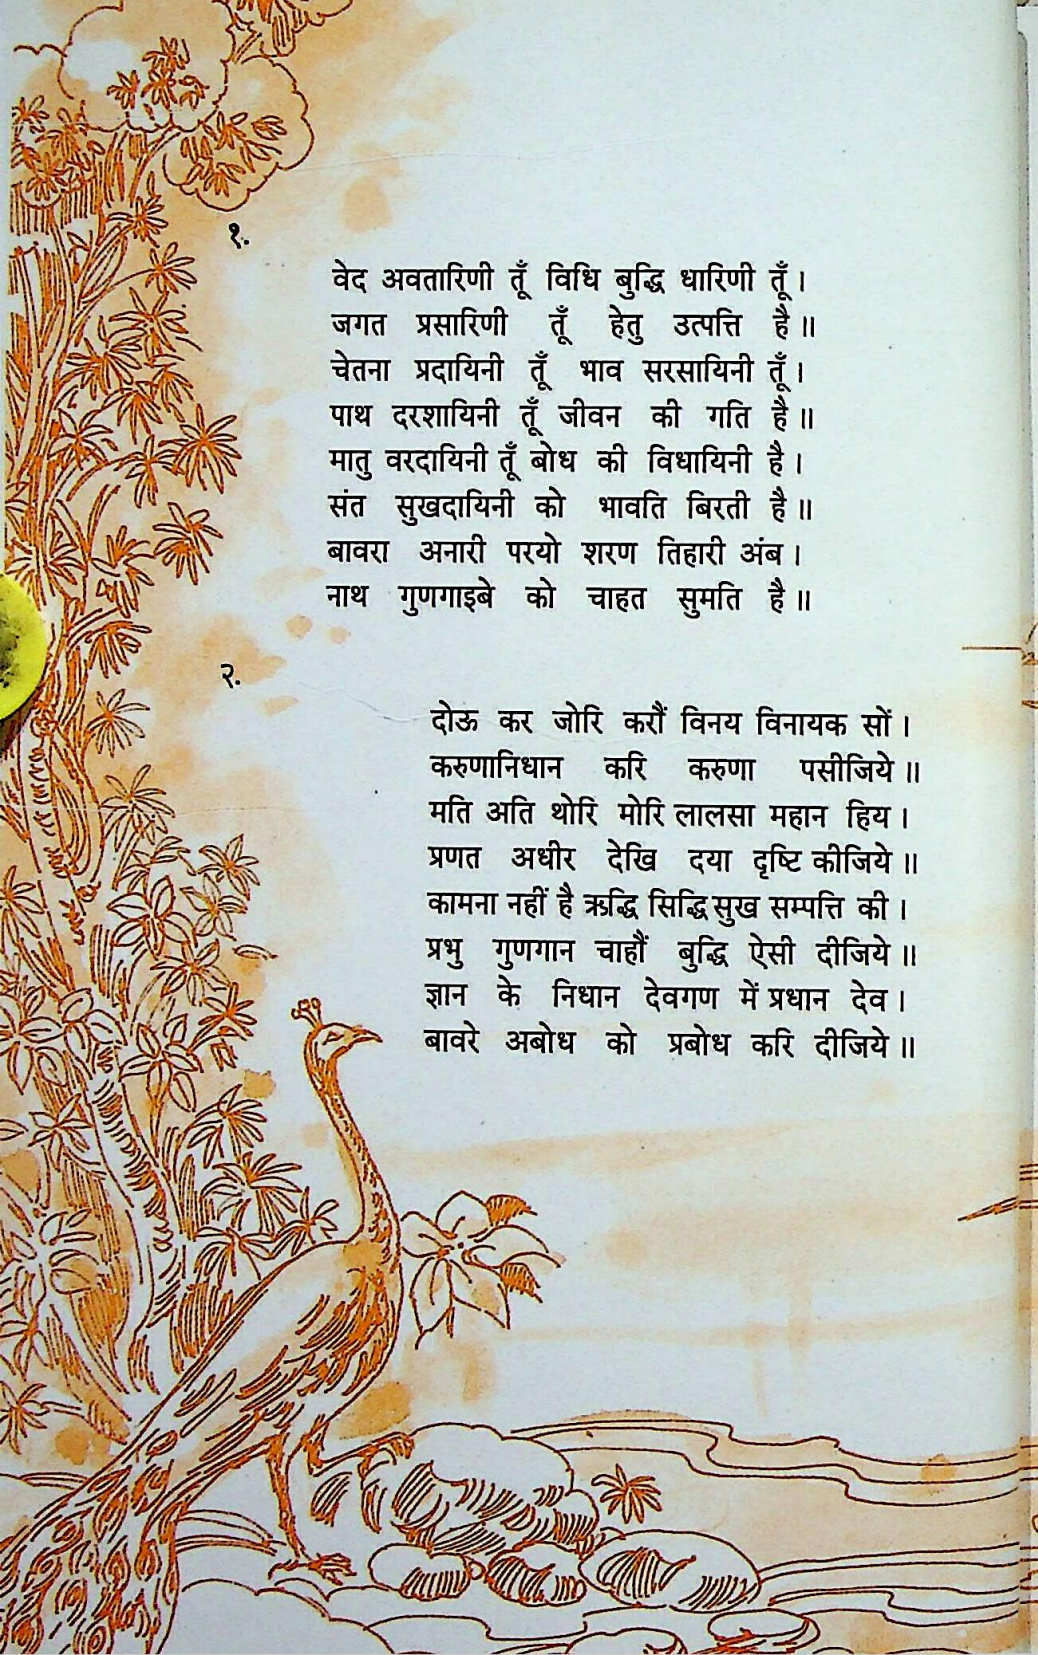 १.
वेद अवतारिणी तूँ विधि बुद्धि धारिणी तूँ ।
जगत प्रसारिणी तूँ हेतु उत्पत्ति है ॥
चेतना प्रदायिनी तूँ भाव सरसायिनी तूँ ।
पाथ दरशायिनी तूँ जीवन की गति है ॥
मातु वरदायिनी तूँ बोध की विधायिनी है ।
संत सुखदायिनी को भावति बिरती है ॥
बावरा अनारी परयो शरण तिहारी अंब ।
नाथ गुणगाइबे को चाहत सुमति है ॥
२.
दोऊ कर जोरि करौं विनय विनायक सों ।
करुणानिधान करि करुणा पसीजिये ॥
मति अति थोरि मोरि लालसा महान हिय ।
प्रणत अधीर देखि दया दृष्टि कीजिये ॥
कामना नहीं है ऋद्धि सिद्धि सुख सम्पत्ति की ।
प्रभु गुणगान चाहौं बुद्धि ऐसी दीजिये ॥
ज्ञान के निधान देवगण में प्रधान देव ।
बावरे अबोध को प्रबोध करि दीजिये ॥